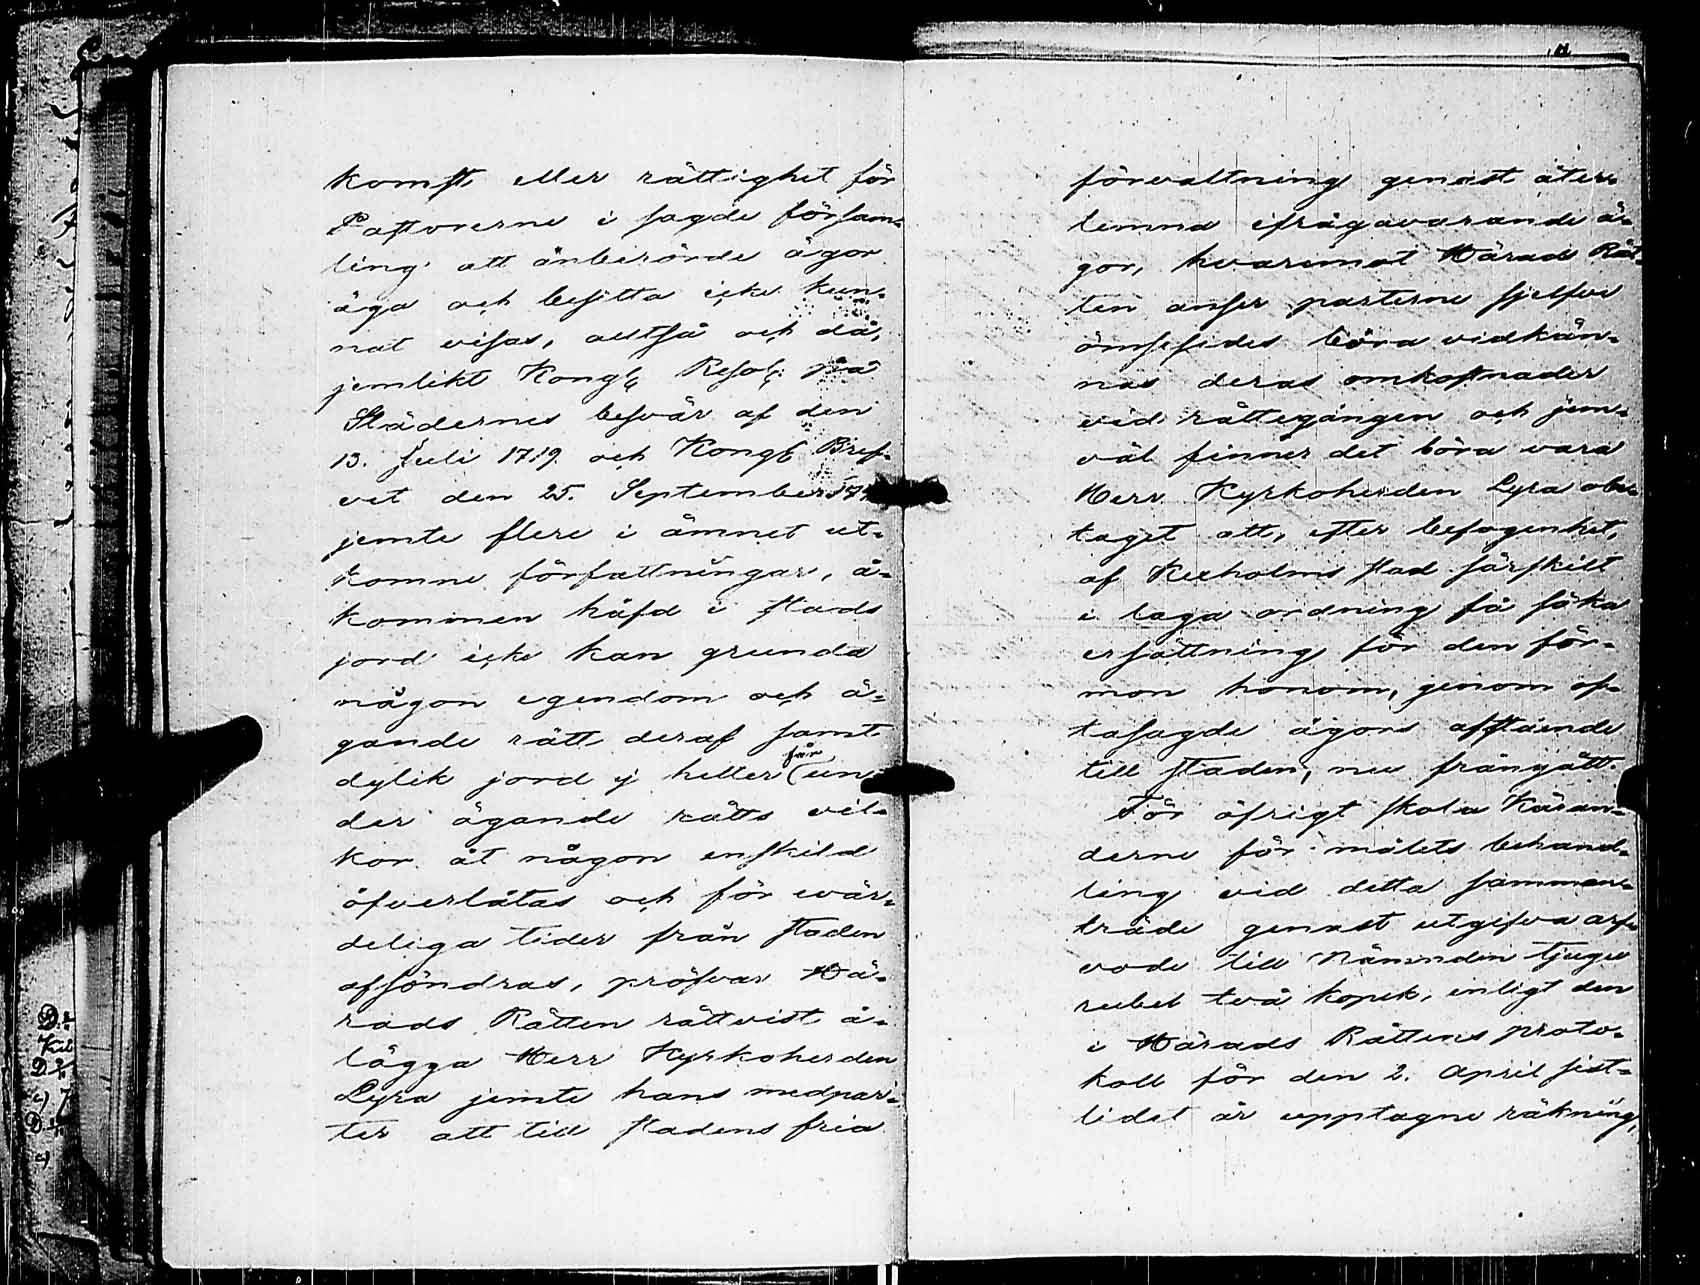 komst eller rättighet för
Pastorerne i sagde försam-
ling att änberörde ägor
äga och besitta icke kun-
nat visas, alltså och då,
jemlikt Kongl. Resol. på
Städernes besvär af den
13. Juli 1719. och Kongl. Bref-
vet den 25. September
jemte flere i ämnet ut-
komne författningar, å-
kommen häfd i stads
jord icke kan grunda
någon egendom och ä-
gande rätt deraf samt
dylik jord ej heller får un-
der ägande rätts vil-
kor åt någon enskild
öfverlåtas och för evär-
deliga tider från staden
afsöndras, pröfvar Hä-
rads Rätten rättvist å-
lägga Herr Kyrkoherden
Lyra jemte hans medpar-
ter att till stadens fria
förvaltning genast åter-
lemna ifrågavarande ä-
gor, hvaremot Härads Rät-
ten anser parterne sjelfve
ömsesides böra vidkän-
nas deras omkostnader
vid rättegången och jem-
väl finner det böra vara
Herr Kyrkoherden Lyra obe-
taget att, efter befogenhet,
af Kexholms stad särskilt
i laga ordning få söka
ersättning för den för-
mon honom, genom of-
tasagde ägors afstående
till staden, nu frångått.
För öfrigt skola Käran-
derne för målets behand-
ling vid detta samman-
träde genast utgifva arf-
vode till Nämnden tjugu
rubel två kopek, enligt den
i Härads Rättens proto-
koll för den 2. April sist-
lidet år upptagne räkning,